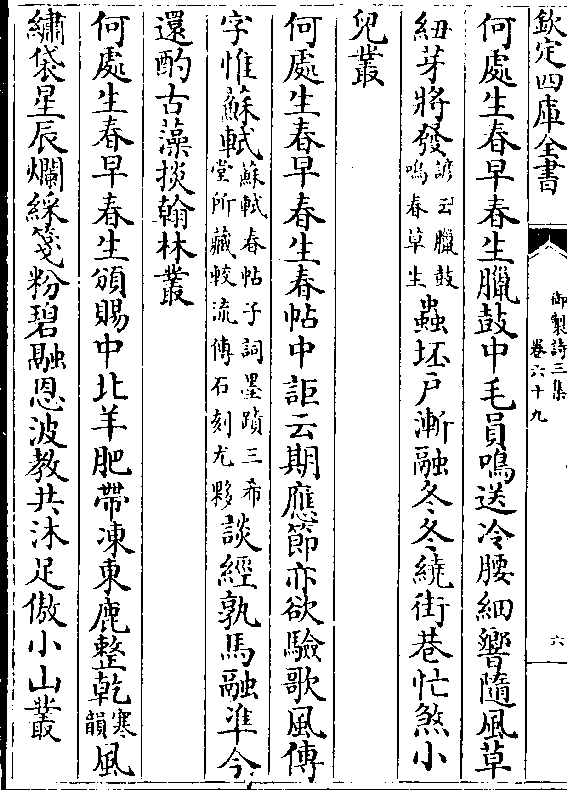 欽定四庫全書
御製詩三集
卷六十九
六
何處生春早春生臘鼓中毛員鳴送冷腰細響隨風草
紐芽將發諺云臘鼓鳴春草生蟲坯戶漸融冬冬繞街巷忙煞小
兒叢
何處生春早春生春帖中詎云期應節亦欲驗歌風傳
字惟蘇軾蘇軾春帖子詞墨蹟三希堂所藏較流傳石刻尤夥談經孰馬融準今
還酌古藻掞翰林叢
何處生春早春生頒賜中北羊肥帶凍東鹿整乾寒韻風
繡袋星辰爛綵箋粉碧融恩波教共沐足傲小山叢